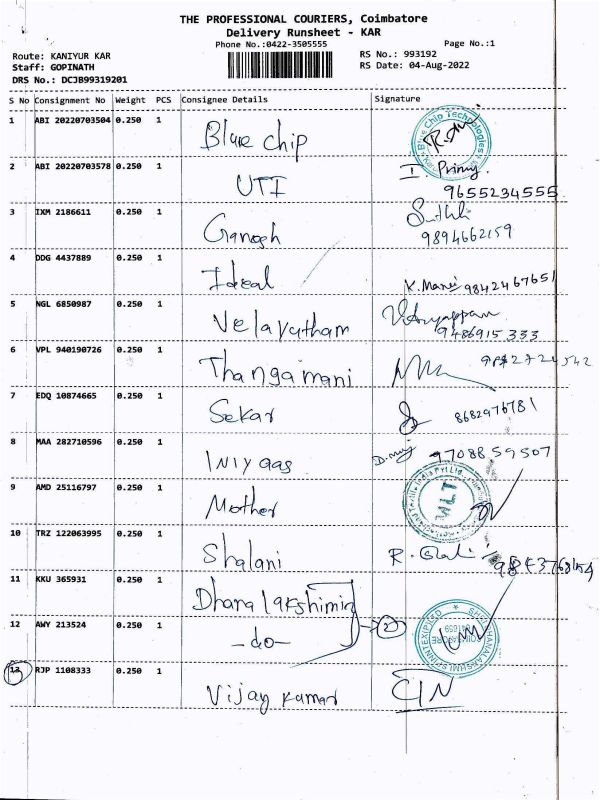 THE PROFESSIONAL COURIERS, Coimbatore
Delivery Runsheet - KAR
Phone No.:0422-3505555
Page No.:1
Route: KANIYUR KAR
Staff: GOPINATH
DRS No.: DCJB99319201
RS No.: 993192
RS Date: 04-Aug-2022
S No Consignment No Weight PCS Consignee Details Signature
1 ABI 20220703504 0.250 1 Blue chip
Blue Chip Technologies
2 ABI 20220703578 0.250 1 UTI
9655234555
3 IXM 2186611 0.250 1 Ganesh
9894662159
4 DDG 4437889 0.250 1 Ideal K. Mani 9842467651
5 NGL 6850987 0.250 1 Velayutham
9486915333
6 VPL 940190726 0.250 1 Thangamani
7 EDQ 10874665 0.250 1 Sekar 8682976781
8 MAA 282710596 0.250 1 Iniyaas 9708859507
9 AMD 25116797 0.250 1 Mother
MLT
10 TRZ 122063995 0.250 1 Shalani
11 KKU 365931 0.250 1 Dhanalakshimi
12 AWY 213524 0.250 1 -do- 2
13 RJP 1108333 0.250 1 Vijay kumar